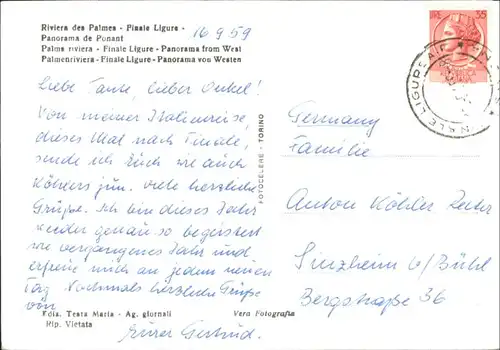 Riviera des Palmes - Finale Ligure -
Panorama de Ponant
Palme riviera - Finale Ligure - Panorama from West
Palmenriviera - Finale Ligure - Panorama von Westen
16.9.59
LIRE 35
Liebe Tante, lieber Onkel!
Von meiner Italienreise,
dieses Mal nach Finale,
sende ich Euch wie auch
Köhlers jun. viele herzliche
Grüße. Ich bin dieses Jahr
wieder genau so begeistert
wie vergangenes Jahr und
erfreue mich an jedem neuen
Tag. Nochmals herzliche Grüße
von
Eurer Gertrud.
Ediz. Testa Maria - Ag. giornali
Rip. Vietata
Vera Fotografia
FOTOCELERE - TORINO
Germany
Familie
Anton Köhler
Sinzheim b/Bühl
Bergstraße 36